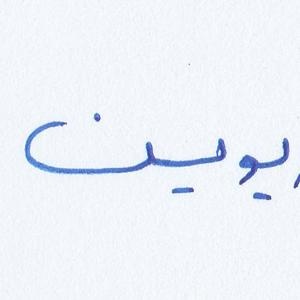 يوين